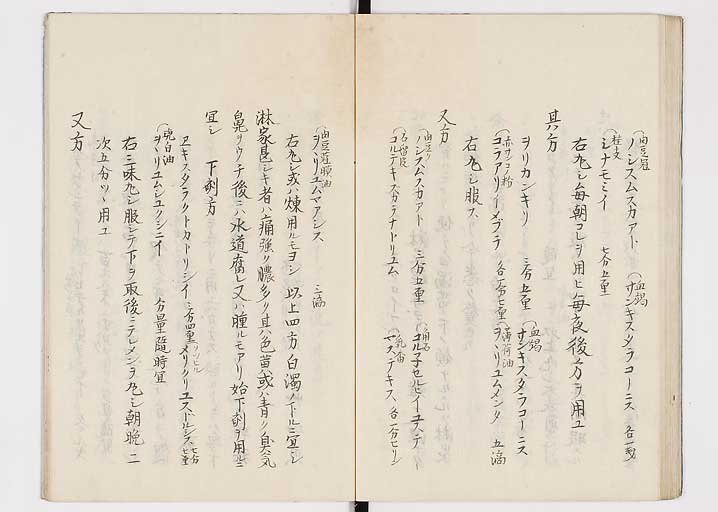 (肉豆蔻)ノシスムスカアト (血竭)サンキスタラコーニス 各一匁
(桂支)シナモミイ 七分五重
右丸シ毎朝コレヲ用ヒ毎夜後方ヲ用ユ
其方
ヲリカンキリ 三分五重 (血竭)サンキスタラコーニス
コラアリーメブラ 各一分七重 (薄荷油)ヲヽリユムメンタ 五滴
右丸シ服ス
又方
ノシスムスカアト 三分五重 コル子セルヒイユステイ
(石榴皮)コルテキスカラナトリユム (乳香)マステキス 各一分
(肉豆蔻頓油)ヲヽリユムマアシス 三滴
右丸シ或ハ煉用ルモヨシ 以上四方白濁ノ下ルニ宜シ
淋家甚シキ者ハ痛強ク膿多ク其ハ色黄或ハ青ク臭気
鼻ヲウチ後ニハ水道腐レ又ハ腫ルモアリ始下剤ヲ用ルニ
宜シ 下剤方
ヱキスタラクトカトリシイ 三分四重 メリクリユスドルシス 七分七重
(琥白油)ヲヽリユムシユクシニイ 分量随時宜
右三味丸シ服シテ下ヲ取後ニテレメンヲ丸シ朝晩ニ
次五分ツヽ用ユ
又方